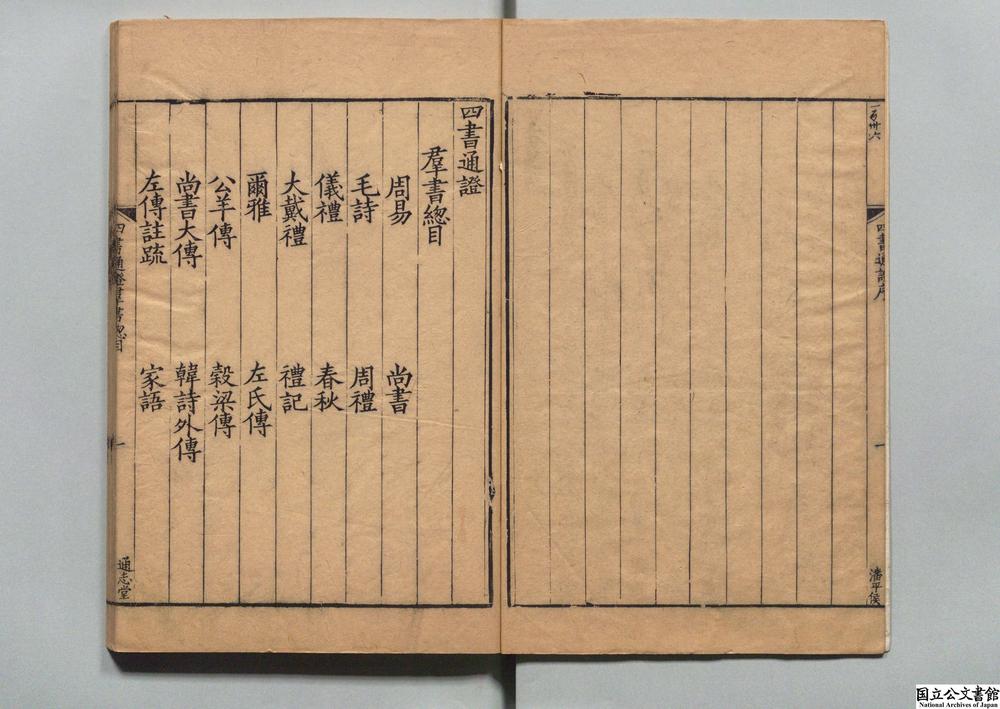 一百卅六
四書通證序
一
潘平侯
四書通證
羣書總目
周易 尚書
毛詩 周禮
儀禮 春秋
大戴禮 禮記
爾雅 左氏傳
公羊傳 穀梁傳
尚書大傳 韓詩外傳
左傳註䟽 家語
四書通證羣書總目
一
通志堂
国立公文書館
National Archives of Japan